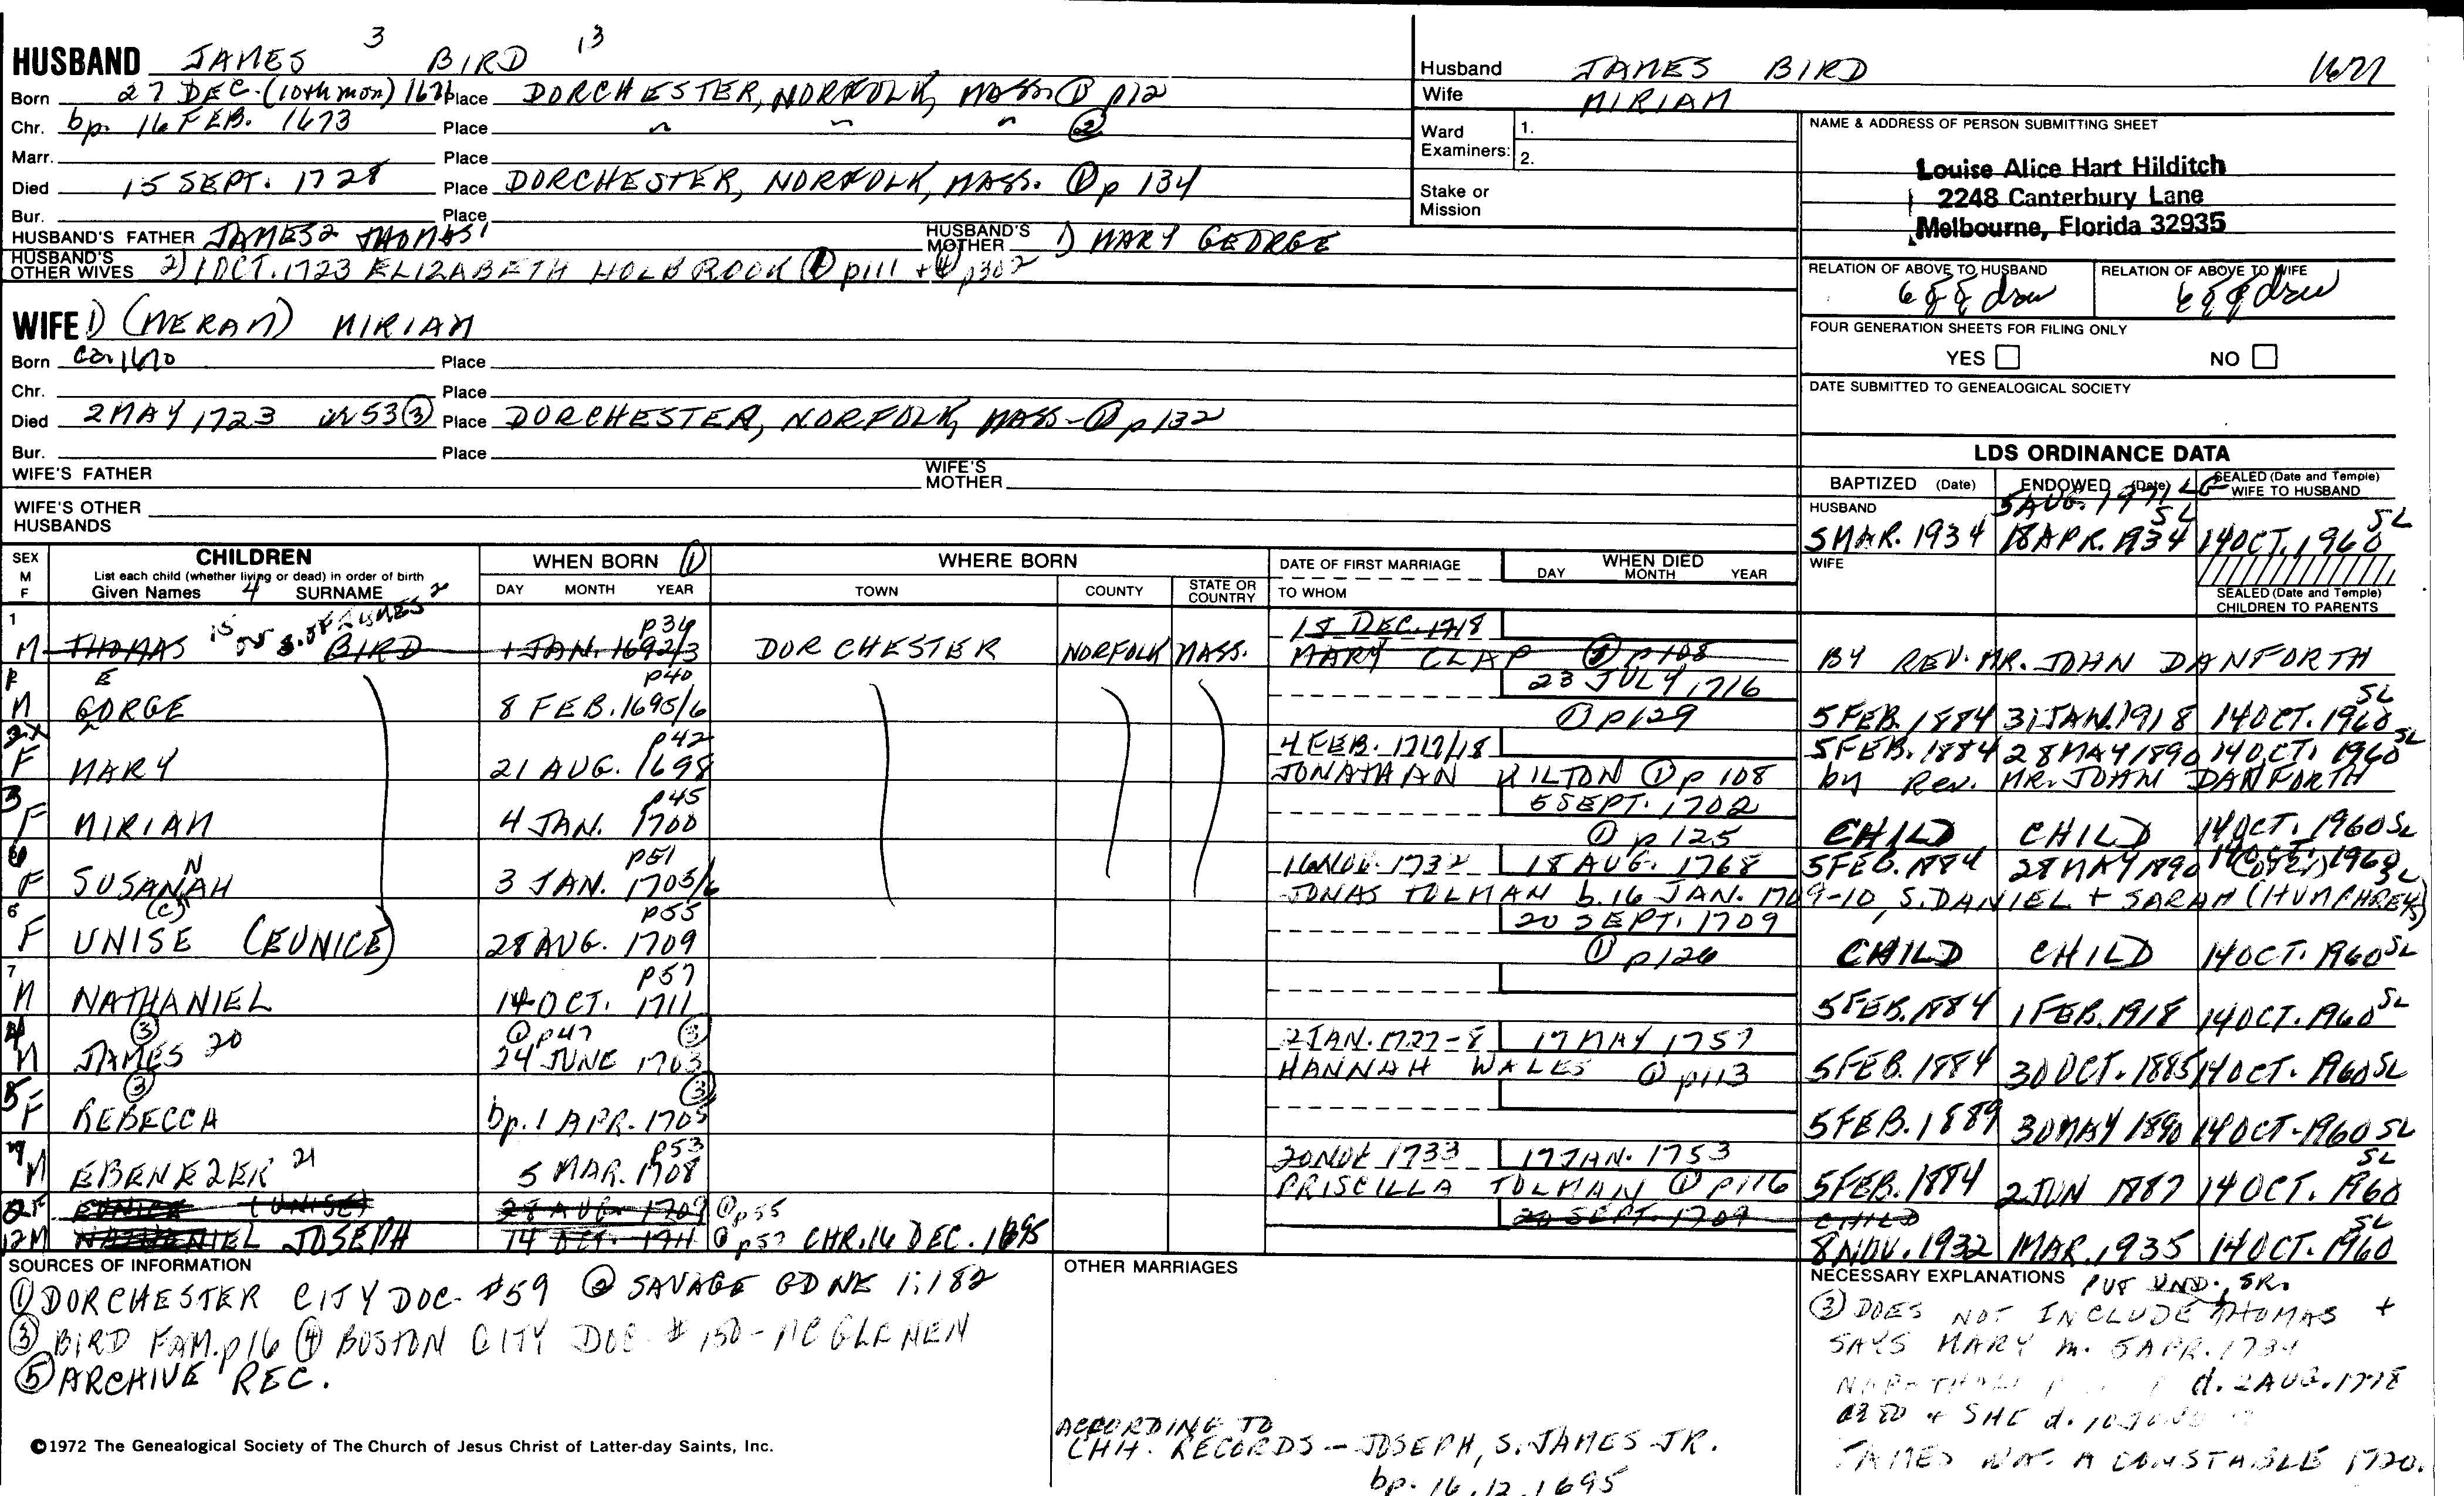 3 13
HUSBAND JAMES BIRD
Born 27 DEC. (10th mon) 1671 Place DORCHESTER, NORFOLK, MASS ① p12
Chr. bp. 16 FEB. 1673 Place " " " ②
Marr. Place
Died 15 SEPT. 1728 Place DORCHESTER, NORFOLK, MASS. ① p 134
Bur. Place
HUSBAND'S FATHER JAMES2 THOMAS1 HUSBAND'S MOTHER 1) MARY GEORGE
HUSBAND'S OTHER WIVES 2) 1 OCT. 1723 ELIZABETH HOLBROOK ① p111 + ④ p302
WIFE 1) (MERAM) MIRIAM
Born ca. 1670 Place
Chr. Place
Died 2 MAY 1723 53 ③ Place DORCHESTER, NORFOLK, MASS - ① p132
Bur. Place
WIFE'S FATHER WIFE'S MOTHER
WIFE'S OTHER HUSBANDS
Husband JAMES BIRD 1671
Wife MIRIAM
Ward Examiners: 1. 2.
Stake or Mission
NAME & ADDRESS OF PERSON SUBMITTING SHEET
Louise Alice Hart Hilditch
2248 Canterbury Lane
Melbourne, Florida 32935
RELATION OF ABOVE TO HUSBAND RELATION OF ABOVE TO WIFE
6 g g daw 6 g g daw
FOUR GENERATION SHEETS FOR FILING ONLY
YES NO
DATE SUBMITTED TO GENEALOGICAL SOCIETY
LDS ORDINANCE DATA
BAPTIZED (Date) ENDOWED (Date) SEALED (Date and Temple) WIFE TO HUSBAND
5 AUG. 1971 LG
HUSBAND
5 MAR. 1934 18 APR. 1934 SL 14 OCT. 1960 SL
WIFE
SEALED (Date and Temple) CHILDREN TO PARENTS
SEX M F CHILDREN WHEN BORN ① WHERE BORN DATE OF FIRST MARRIAGE WHEN DIED
List each child (whether living or dead) in order of birth
Given Names 4 SURNAME DAY MONTH YEAR TOWN COUNTY STATE OR COUNTRY TO WHOM DAY MONTH YEAR
1 is s. of JAMES 2 p34 18 DEC. 1718
M THOMAS BIRD 1 JAN. 1692/3 DORCHESTER NORFOLK MASS. MARY CLAP ① p108 BY REV. MR. JOHN DANFORTH
E p40 23 JULY 1716
M GORGE 8 FEB. 1695/6 ① p129 5 FEB. 1884 31 JAN. 1918 14 OCT. 1960 SL
p42 4 FEB. 1717/18 5 FEB. 1884 28 MAY 1890 14 OCT. 1960 SL
F MARY 21 AUG. 1698 JONATHAN KILTON ① p 108 by Rev. MR. JOHN DANFORTH
3 p45 5 SEPT. 1702
F MIRIAM 4 JAN. 1700 ① p 125 CHILD CHILD 14 OCT. 1960 SL
6 N p51 16 NOV. 1732 18 AUG. 1768 5 FEB. 1884 28 MAY 1890 14 OCT. 1960 SL
F SUSANAH 3 JAN. 1705/6 JONAS TOLMAN b. 16 JAN. 1709-10, S. DANIEL + SARAH (HUMPHREYS)
6 (C) p55 20 SEPT. 1709
F UNISE (EUNICE) 28 AUG. 1709 ① p126 CHILD CHILD 14 OCT. 1960 SL
7 p57
M NATHANIEL 14 OCT. 1711 5 FEB. 1884 1 FEB. 1918 14 OCT. 1960 SL
4 ③ ① p47 ③ 2 JAN. 1727-8 17 MAY 1757
M JAMES 20 24 JUNE 1703 HANNAH WALES ① p113 5 FEB. 1884 30 OCT. 1885 14 OCT. 1960 SL
5 ③ ③
F REBECCA bp. 1 APR. 1705 5 FEB. 1889 30 MAY 1890 14 OCT. 1960 SL
p53 20 NOV 1733 17 JAN. 1753
M EBENEZER 21 5 MAR. 1708 PRISCILLA TOLMAN ① p116 5 FEB. 1884 2 JUN 1887 14 OCT. 1960 SL
F EUNICE (UNISE) 28 AUG. 1709 ① p55 20 SEPT. 1709 CHILD
12 M NATHANIEL JOSEPH 14 OCT. 1711 ① p57 CHR. 16 DEC. 1695 8 NOV. 1932 MAR. 1935 14 OCT. 1960 SL
SOURCES OF INFORMATION
① DORCHESTER CITY DOC. #59 ② SAVAGE GD NE 1:182
③ BIRD FAM. p16 ④ BOSTON CITY DOC. # 150 - MCGLENEN
⑤ ARCHIVE REC.
©1972 The Genealogical Society of The Church of Jesus Christ of Latter-day Saints, Inc.
OTHER MARRIAGES
ACCORDING TO
CHH. RECORDS - JOSEPH, S. JAMES JR.
bp. 16.12.1695
NECESSARY EXPLANATIONS PUT UND. SR.
③ DOES NOT INCLUDE THOMAS +
SAYS MARY m. 5 APR. 1734
d. 2 AUG. 1778
+ SHE d.
JAMES A CONSTABLE 1720.